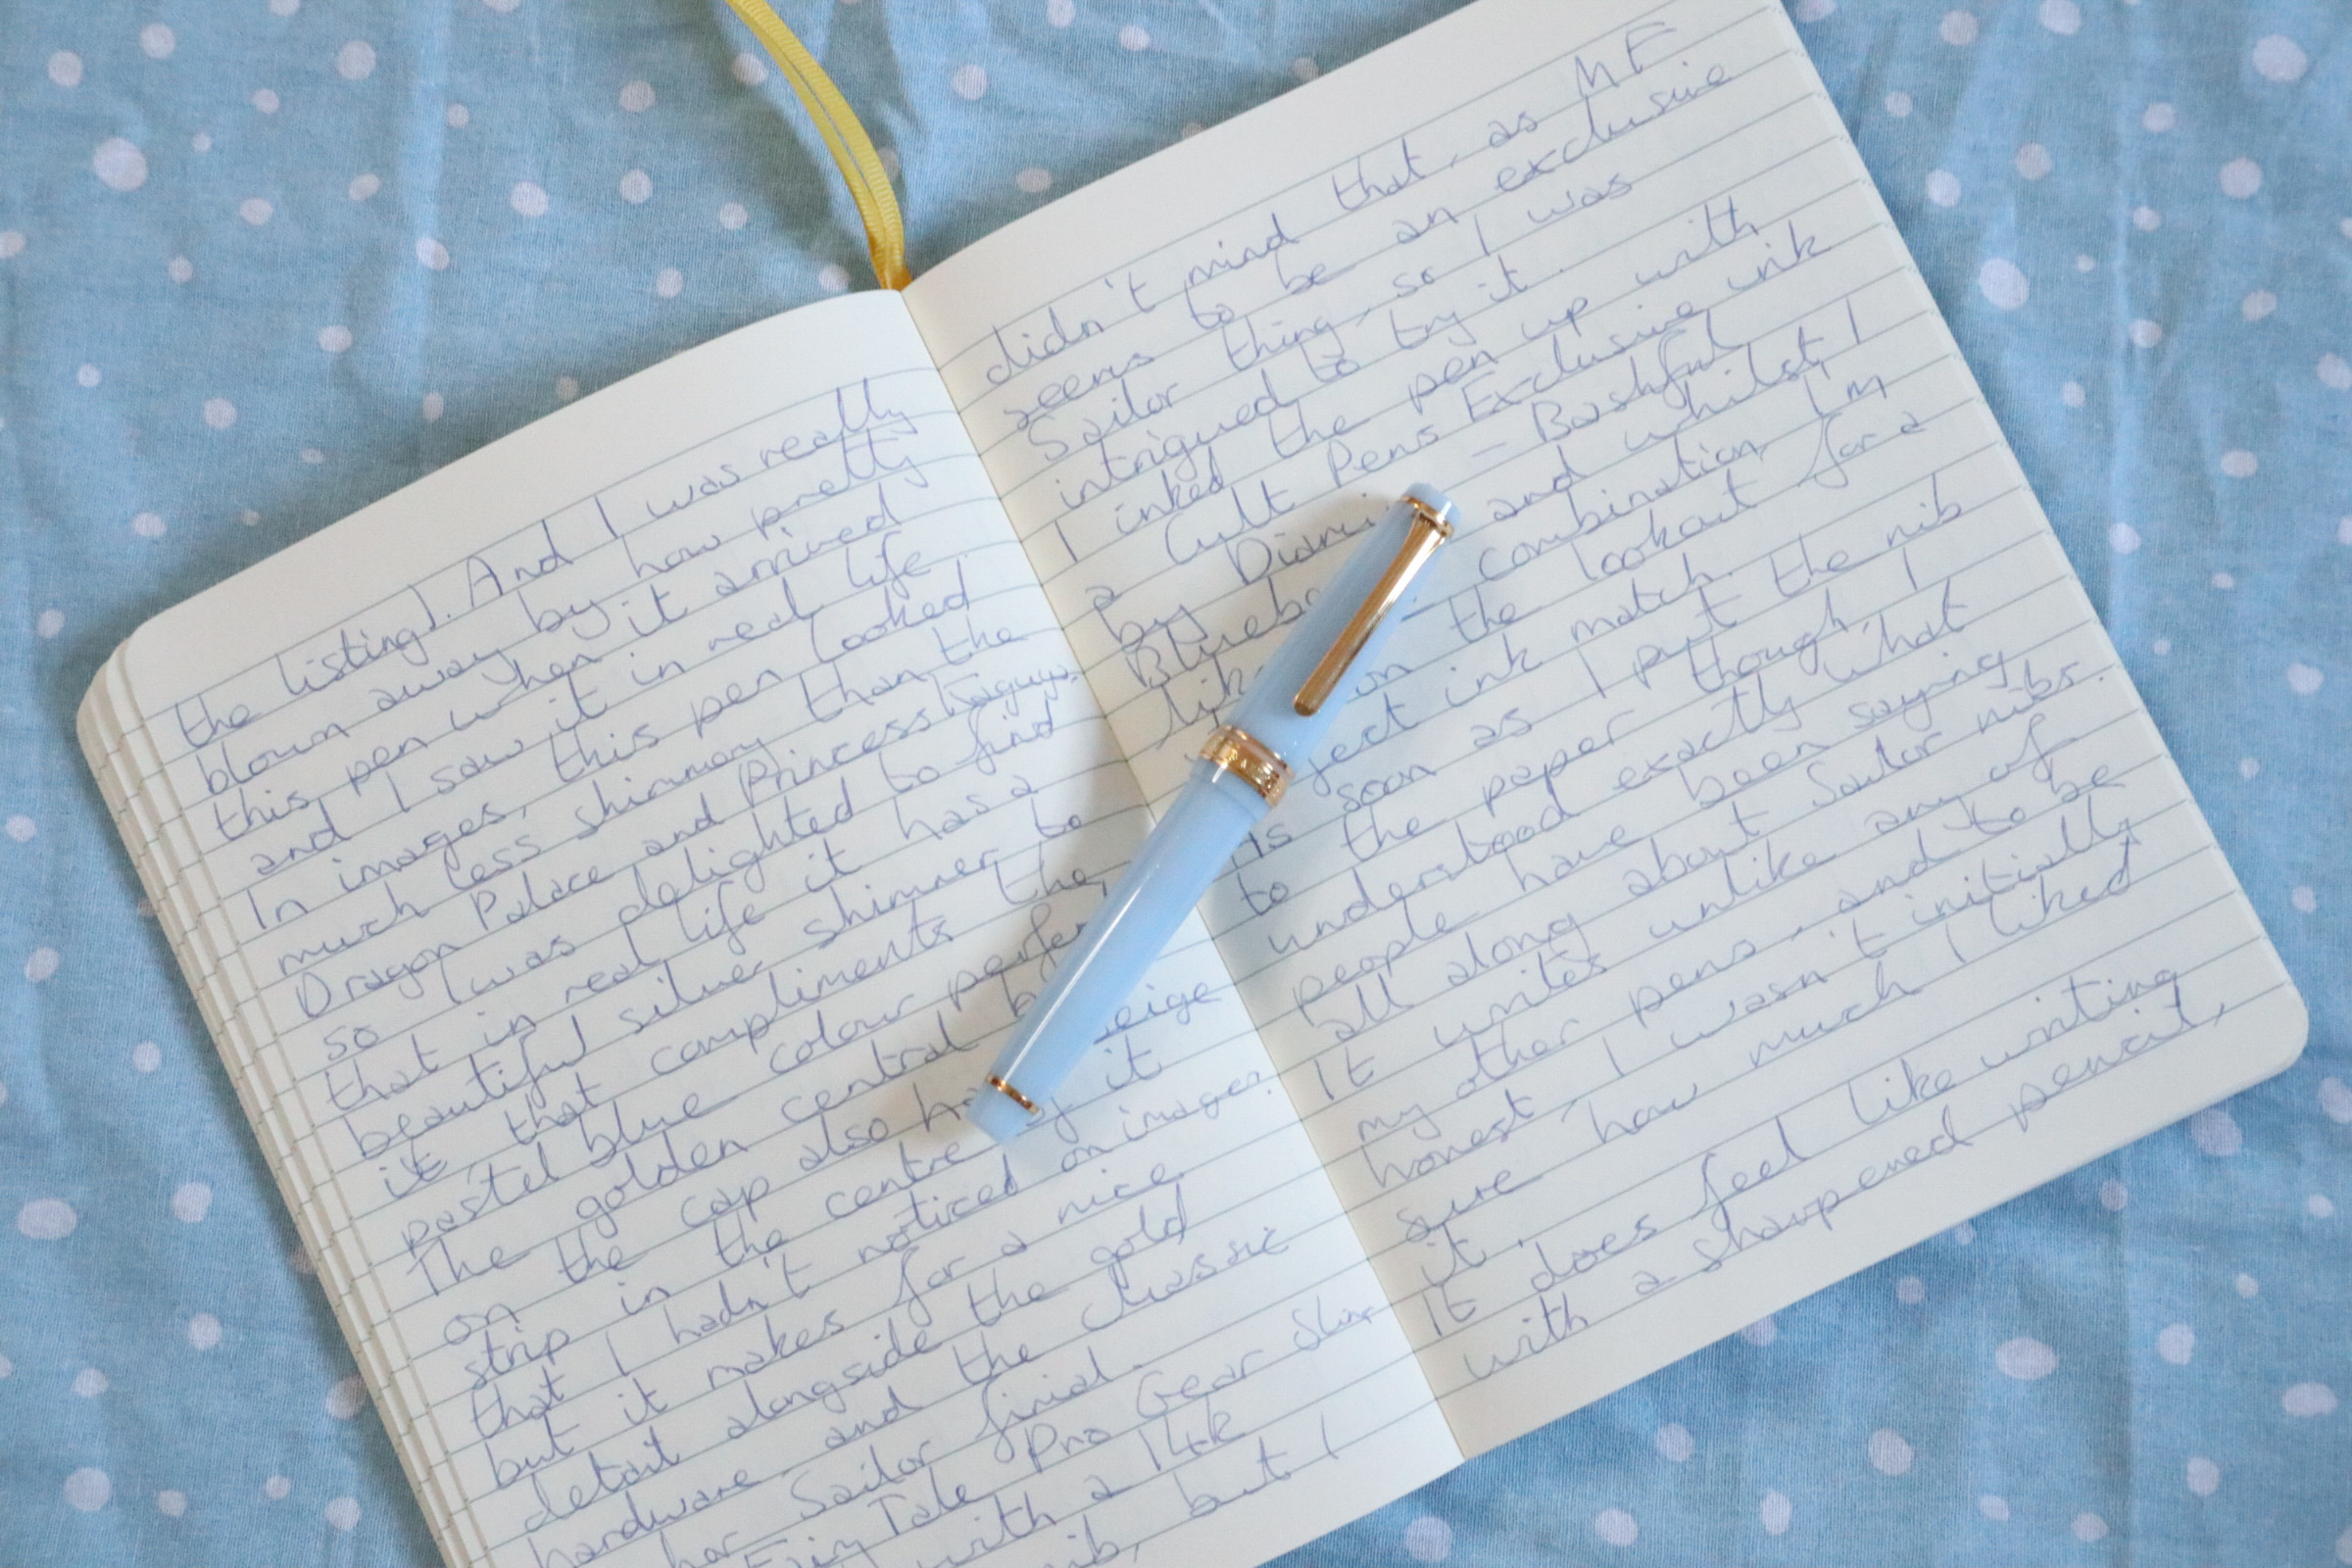 the listing). And I was really
blown away by how pretty
this pen when it arrived
and I saw it in real life.
In images, this pen looked
much less shimmery than the
Dragon Palace and Princess Kaguya.
so I was delighted to find
that in real life it has a
beautiful silver shimmer to
it, that compliments the
pastel blue colour
The golden central
on the cap also beige
strip in the centre it
that I hadn't noticed on images.
but it makes for a nice
detail alongside the gold
hardware and the classic
Sailor finial.
Fairy Tale Pro Gear Slim
with a 14k
nib, but I
didn't mind that, as MF
seems to be an exclusive
Sailor thing, so I was
intrigued to try it.
I inked the pen up with
a Cult Pens Exclusive ink
by - Bashful
and whilst I
combination, I'm
on the lookout for a
ink match.
As soon as I put the nib
to the paper though, I
understood exactly what
people have been saying
all along about Sailor nibs.
It writes unlike any of
my other pens, and to be
honest, I wasn't initially
sure how much I liked
it.
It does feel like writing
with a sharpened pencil,